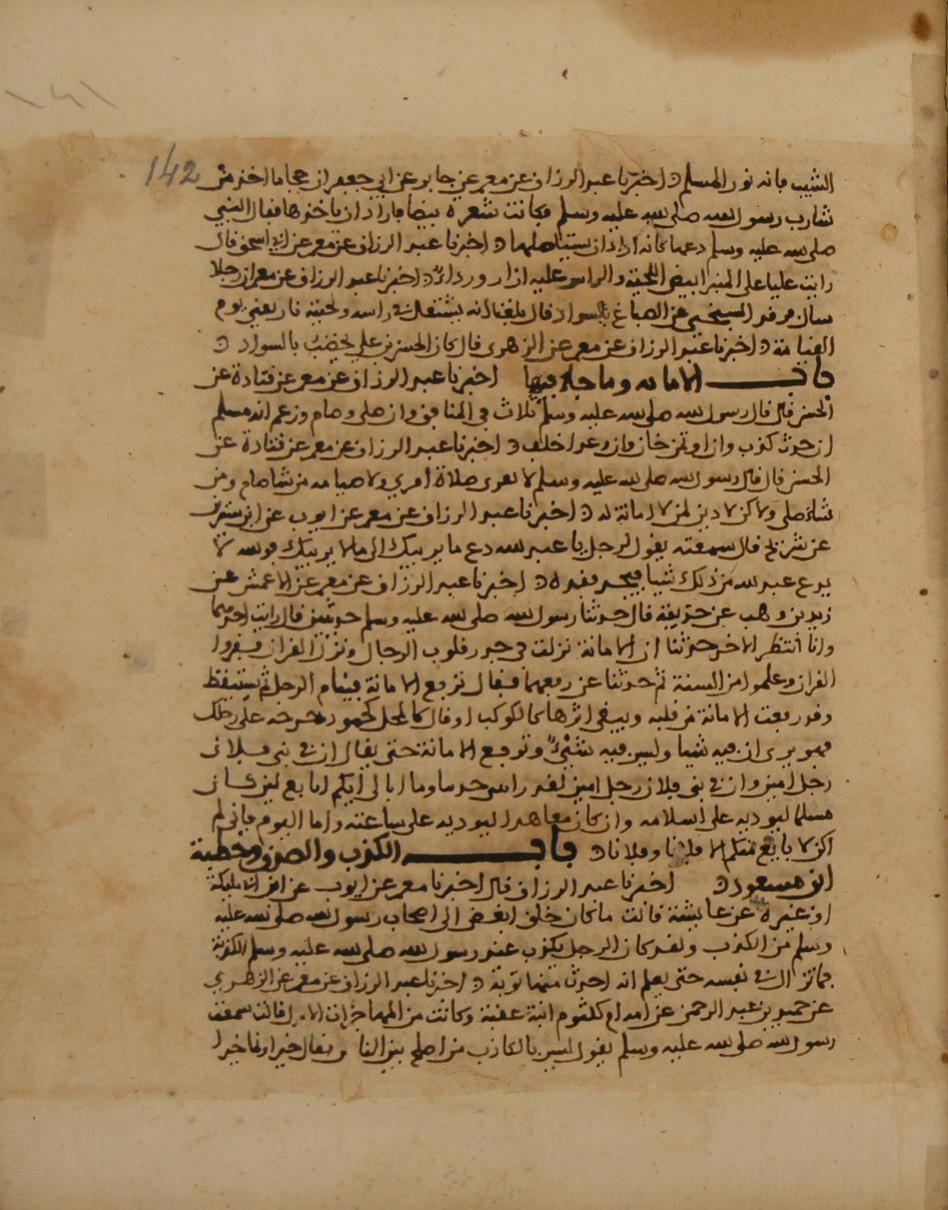 142
١٤١
الشيب فانه نور المسلم اخبرنا عبد الرزاق عن معمر عن جابر عن ابي جعفر ان حجاما اخذ من
شارب رسول الله صلى الله عليه وسلم فكانت شعرة بيضا فاراد ان ياخذها فقال النبي
صلى الله عليه وسلم دعها كانه اراد ان يستاصلها اخبرنا عبد الرزاق عن معمر عن ابي اسحق قال
رايت عليا على المنبر ابيض اللحية والراس عليه ازار وردا اخبرنا عبد الرزاق عن معمر ان رجلا
سال فرقد السبخي عن الصباغ بالسواد فقال بلغنا انه يشتعل في راسه ولحيته نار يعني يوم
القيامة اخبرنا عبد الرزاق عن معمر عن الزهري قال كان الحسن بن علي يخضب بالسواد
باب الامانه وما جا فيها اخبرنا عبد الرزاق عن معمر عن قتادة عن
الحسن قال قال رسول الله صلى الله عليه وسلم ثلاث في المنافق وان صلى وصام وزعم انه مسلم
ان حدث كذب وان اوتمن خان وان وعد اخلف اخبرنا عبد الرزاق عن معمر عن قتادة عن
الحسن قال قال رسول الله صلى الله عليه وسلم لا يغرن صلاة امري ولا صيامه من شا صام ومن
شا صلى ولاكن لا دين لمن لا امانة له اخبرنا عبد الرزاق عن معمر عن ايوب عن ابن سيرين
عن شريح قال سمعته يقول لرجل يا عبد الله دع ما يريبك الى ما لا يريبك فوالله لا
يدع عبد الله من ذلك شيا فيجد فقده اخبرنا عبد الرزاق عن معمر عن الاعمش عن
زيد بن وهب عن حذيفة قال حدثنا رسول الله صلى الله عليه وسلم حديثين قد رايت احدهما
وانا انتظر الاخر حدثنا ان الامانة نزلت في جذر قلوب الرجال ونزل القران فقروا
القران وعلموا من السنة ثم حدثنا عن رفعهما فقال ترفع الامانة فينام الرجل ثم يستيقظ
وقد رفعت الامانة من قلبه ويبقى اثرها كالوكب او قال كالمجل كجمر دحرجته على رجلك
فهو يرى ان فيه شيا وليس فيه شيء وترفع الامانة حتى يقال ان في بني فلان
رجل امين وان في بني فلان رجل امين لقد رايتني وما ابالي ايكم ابايع لين كان
مسلما ليردنه علي اسلامه وان كان معاهدا ليردنه علي ساعته واما اليوم فاني لم
اكن لابايع منكم الا فلانا وفلانا باب الكذب والصدق وخطبة
ابن مسعود اخبرنا عبد الرزاق قال اخبرنا معمر عن ايوب عن ابن ابي مليكة
او غيره عن عايشة قالت ما كان خلق ابغض الى اصحاب رسول الله صلى الله عليه
وسلم من الكذب ولقد كان الرجل يكذب عند رسول الله صلى الله عليه وسلم الكذبة
فما تزال في نفسه حتى يعلم انه احدث منها توبة اخبرنا عبد الرزاق عن معمر عن الزهري
عن حميد بن عبد الرحمن عن امه ام كلثوم ابنة عقبة وكانت من المهاجرات الاول قالت سمعت
رسول الله صلى الله عليه وسلم يقول ليس بالكاذب من اصلح بين الناس فقال خيرا او نما خيرا